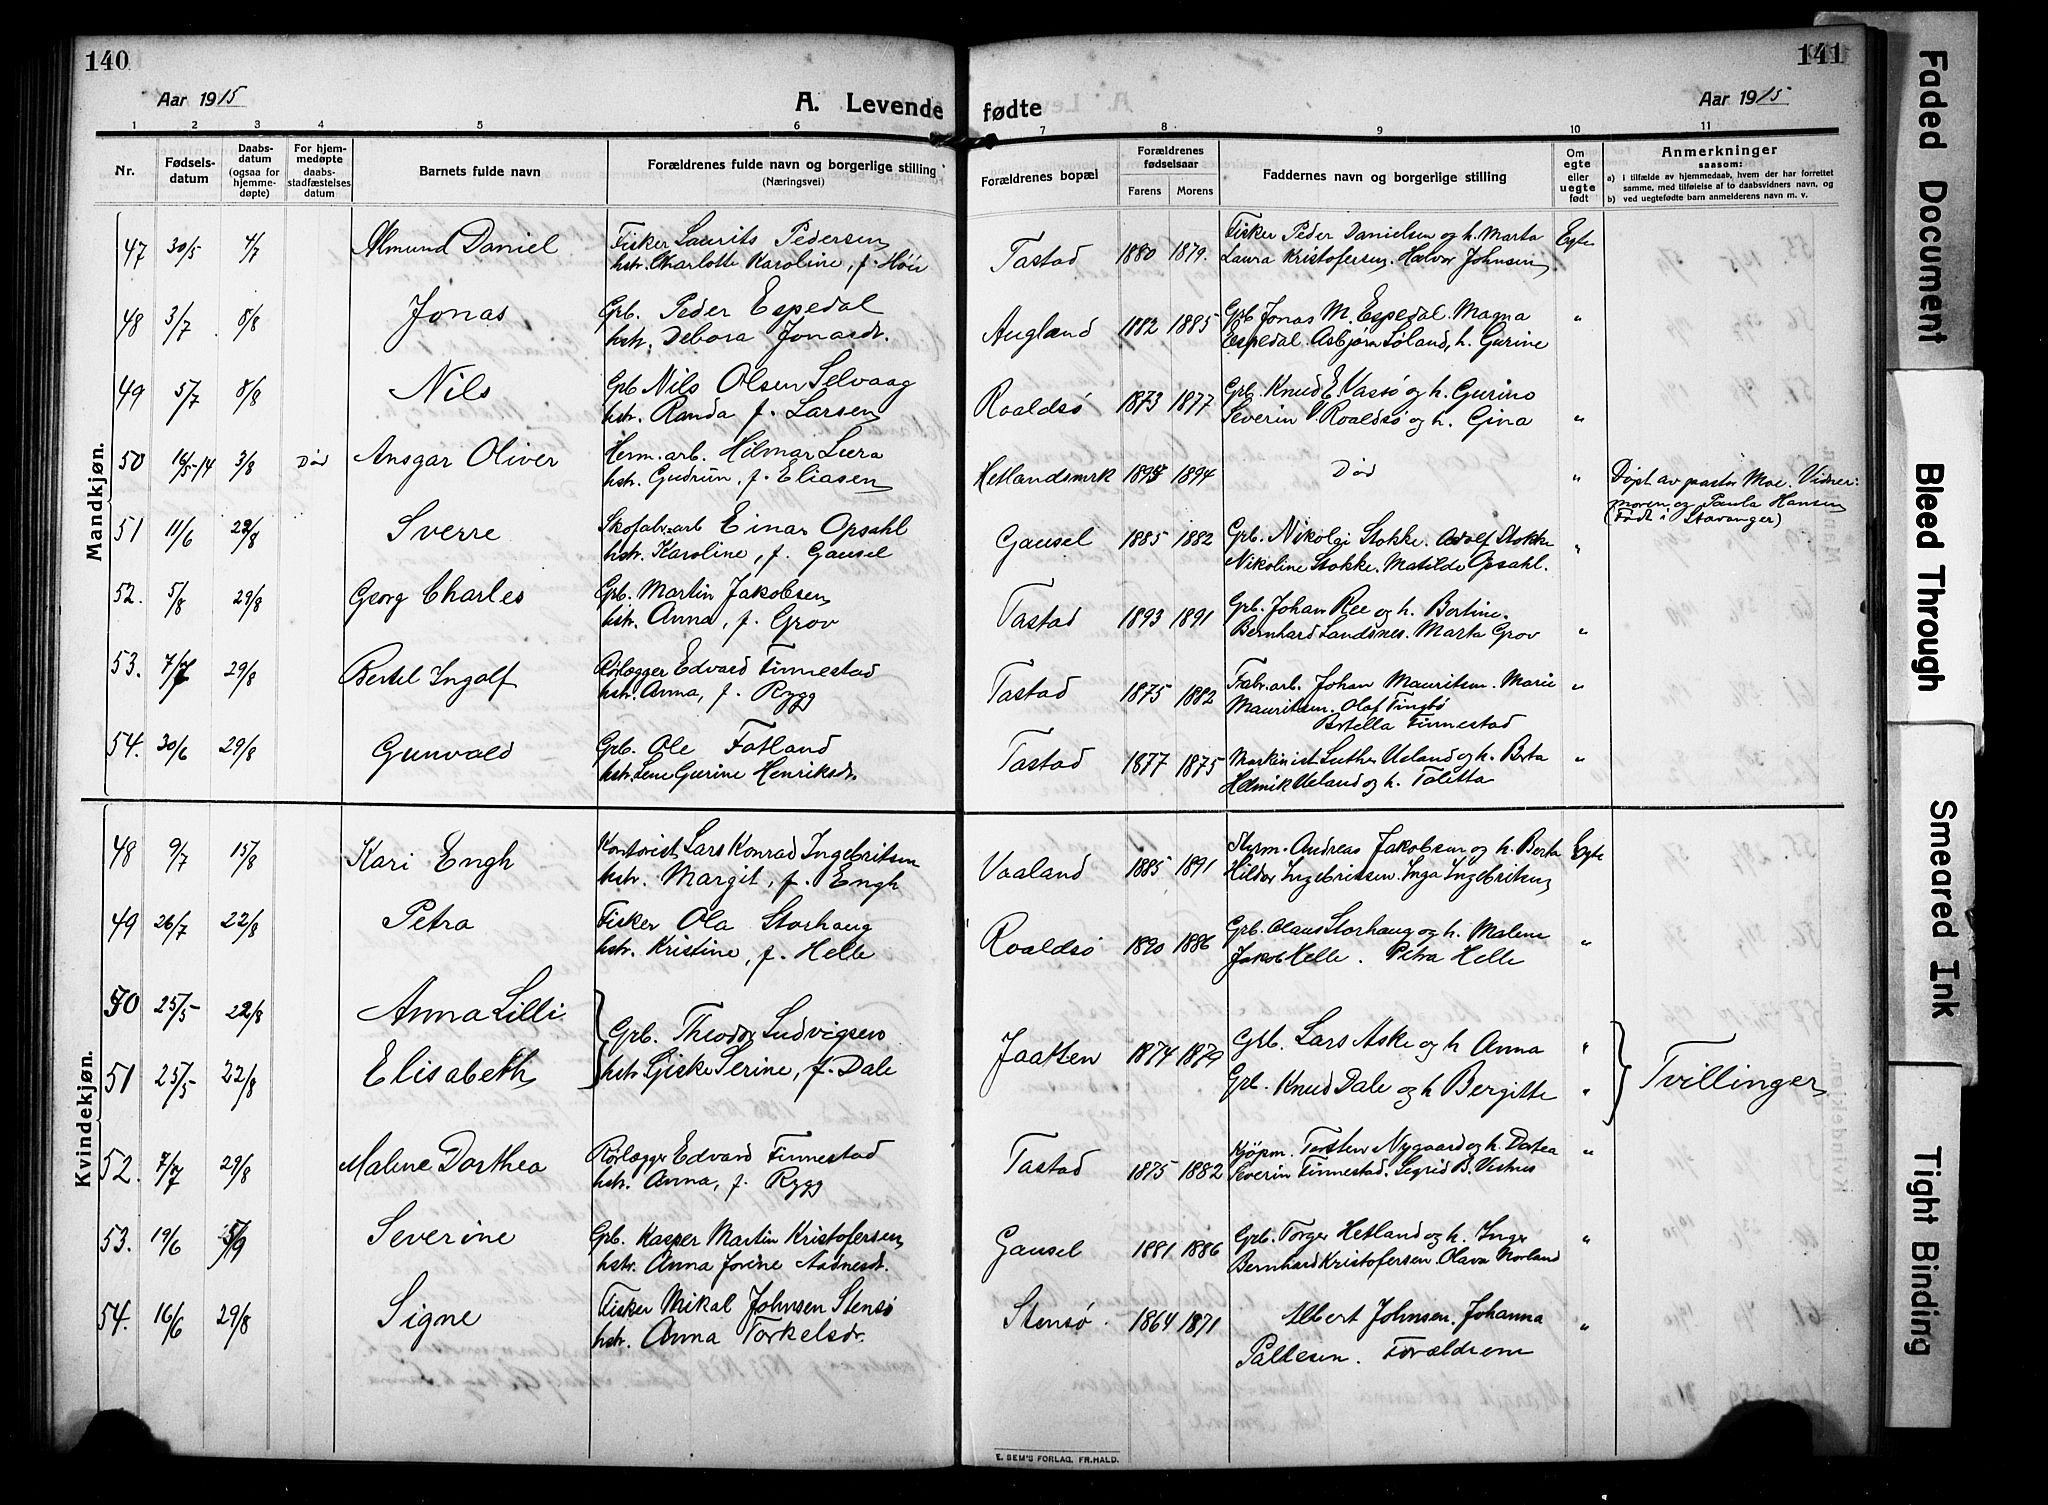 140
141
Aar 1915
A. Levende
fødte
Aar 1915
1 2 3 4 5 6 7 8 9 10 11
Nr.
Fødsels-
datum
Daabs-
datum
(ogsaa for
hjemme-
døpte)
For hjem-
medøpte
daabs-
stadfæstelses
datum
Barnets fulde navn
Forældrenes fulde navn og borgerlige stilling
(Næringsvei)
Forældrenes bopæl
Forældrenes
fødselsaar
Farens Morens
Faddernes navn og borgerlige stilling
Om
egte
eller
uegte
født
Anmerkninger
saasom:
a) I tilfælde av hjemmedaab, hvem der har forrettet
samme, med tilføielse af to daabsvidners navn, og
b) ved uegtefødte barn anmelderens navn m. v.
Mandkjøn.
47 30/5 4/7 Almund Daniel Fisker Laurits Pedersen Tastad 1880 1879. Fisker Peder Danielsen og h. Marta Egte
hstr. Charlotte Karoline, f. Høie Laura Kristofersen. Halvor Johnsen
48 3/7 8/8 Jonas Grb. Peder Espedal Augland 1882 1885 Grb Jonas M. Espedal. Magna "
hstr. Debora Jonasdr. Espedal. Asbjørn Söland, h. Gurine
49 5/7 8/8 Nils Grb Nils Olsen Selvaag Roaldsö 1873 1877 Grb. Knud E. Vassö og h. Gurine
hstr. Randa f. Larsen Severin Roaldsö og h. Gina "
50 16/5-14 3/8 Död Ansgar Oliver Herm. arb. Hilmar Lura Hetlandsmrk 1894 Död " Döpt av pastor Moe. Vidner:
hstr. Gudrun, f. Eliasen moren og Paula Hansen
(Født i Stavanger)
51 11/6 29/8 Sverre Skofabr. arb Einar Opsahl Gausel 1885 1882 Grb. Nikolai Stokke. Adolf Stokke "
hstr. Karoline, f. Gausel Nikoline Stokke. Matilde Opsahl.
52. 5/8 29/8 Georg Charles Grb. Martin Jakobsen Tastad 1893 1891 Grb. Johan Ree og h. Bertine.
hstr. Anna, f. Grov Bernhard Landsnes. Marta Grov "
53. 7/7 29/8 Bertel Ingolf Rörlægger Edvard Finnestad Tastad 1875 1882 Fabr. arb. Johan Mauritsen. Marie "
hstr. Anna, f. Rygg Mauritsen. Olaf Tingbö
Bertella Finnestad
54. 30/6 29/8 Gunvald Grb. Ole Fatland Tastad 1877 1875 Maskinist Luther Ueland og h. Berta "
hstr. Lene Gurine Henriksdr. Henrik Ueland og h. Taletta
Kvindekjøn.
48 9/7 15/8 Kari Engh Kontorist Lars Konrad Ingebritsen Vaaland 1885 1891 Styrm. Andreas Jakobsen og h. Berta Egte
hstr. Margit, f. Engh Hildur Ingebritsen. Inga Ingebritsen
49 26/7 22/8 Petra Fisker Ola Storhaug Roaldsö 1890 1886 Grb. Olaus Storhaug og h. Malene "
hstr. Kristine, f. Helle Jakob Helle. Petra Helle
50 25/5 22/8 Anna Lilli Grb. Theodor Ludvigsen Jaatten 1874 1879 Grb. Lars Aske og h Anna " Tvillinger
51 25/5 22/8 Elisabeth hstr. Giske Serine, f. Dale Grb. Knud Dale og h Bergitte "
52. 7/7 29/8 Malene Dorthea Rörlægger Edvard Finnestad Tastad 1875 1882 Kjöpm. Torsten Nygaard og h. Dortea "
hstr. Anna, f. Rygg Severin Finnestad. Sigrid B. Vestnes
53. 19/6 5/9 Severine Grb. Kasper Martin Kristofersen Gausel 1881 1886 Grb. Torger Hetland og h. Inger "
hstr. Anna Jorine Aadnesdr. Bernhard Kristofersen. Olava Norland
54. 16/6 29/8 Signe Fisker Mikal Johnsen Stensö Stensö. 1864 1871 Albert Johnsen. Johanna "
hstr. Anna Torkelsdr. Pallesen. Forældrene
E. SEM'S FORLAG, FR.HALD.
Faded Document
Bleed Through
Smeared Ink
Tight Binding